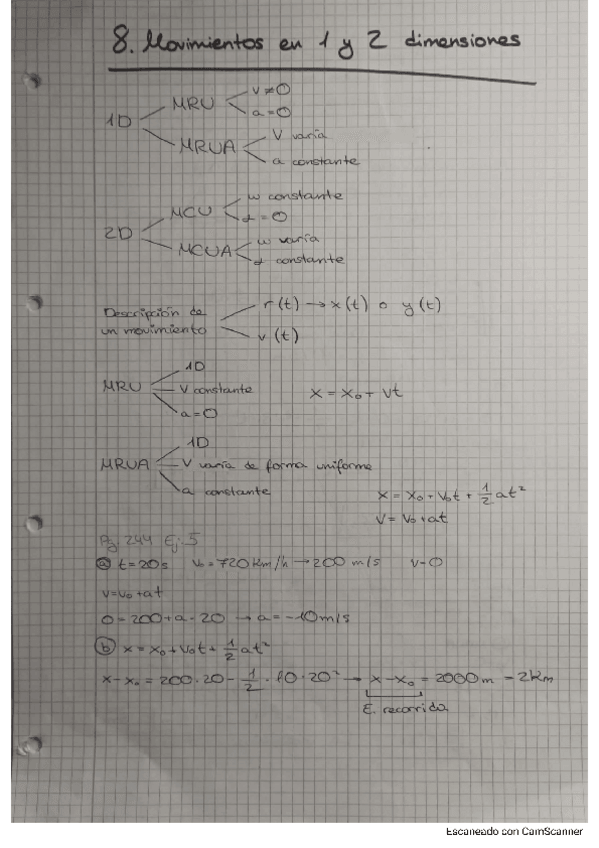 8. Movimientos en 1 y 2 dimensiones
1D
MRU
v≠0
a=0
MRUA
V varía
a constante
2D
MCU
ω constante
α=0
MCUA
ω varía
α constante
Descripción de un movimiento
r(t) → x(t) o y(t)
v(t)
MRU
1D
V constante
a=0
x = x₀ + vt
MRUA
1D
V varía de forma uniforme
a constante
x = x₀ + v₀t + 1/2 at²
v = v₀ + at
Pg. 244 Ej. 5
ⓐ t=20s v₀=720km/h → 200 m/s v=0
v=v₀+at
0=200+a·20 → a=-10m/s
ⓑ x=x₀+v₀t+1/2 at²
x-x₀=200·20-1/2·10·20² → x-x₀=2000m=2km
E. recorrida
Escaneado con CamScanner